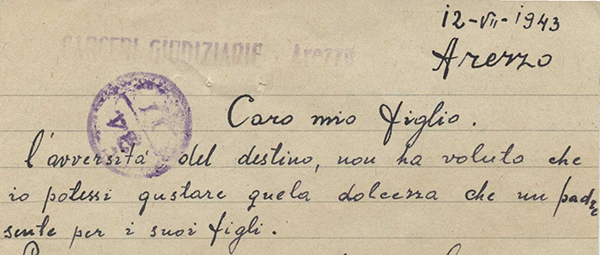 12-VII-1943
CARCERI GIUDIZIARIE - Arezzo
Arezzo
Caro mio figlio.
l'avversità del destino, non ha voluto che
io potessi gustare quela dolcezza che un padre
sente per i suoi figli.